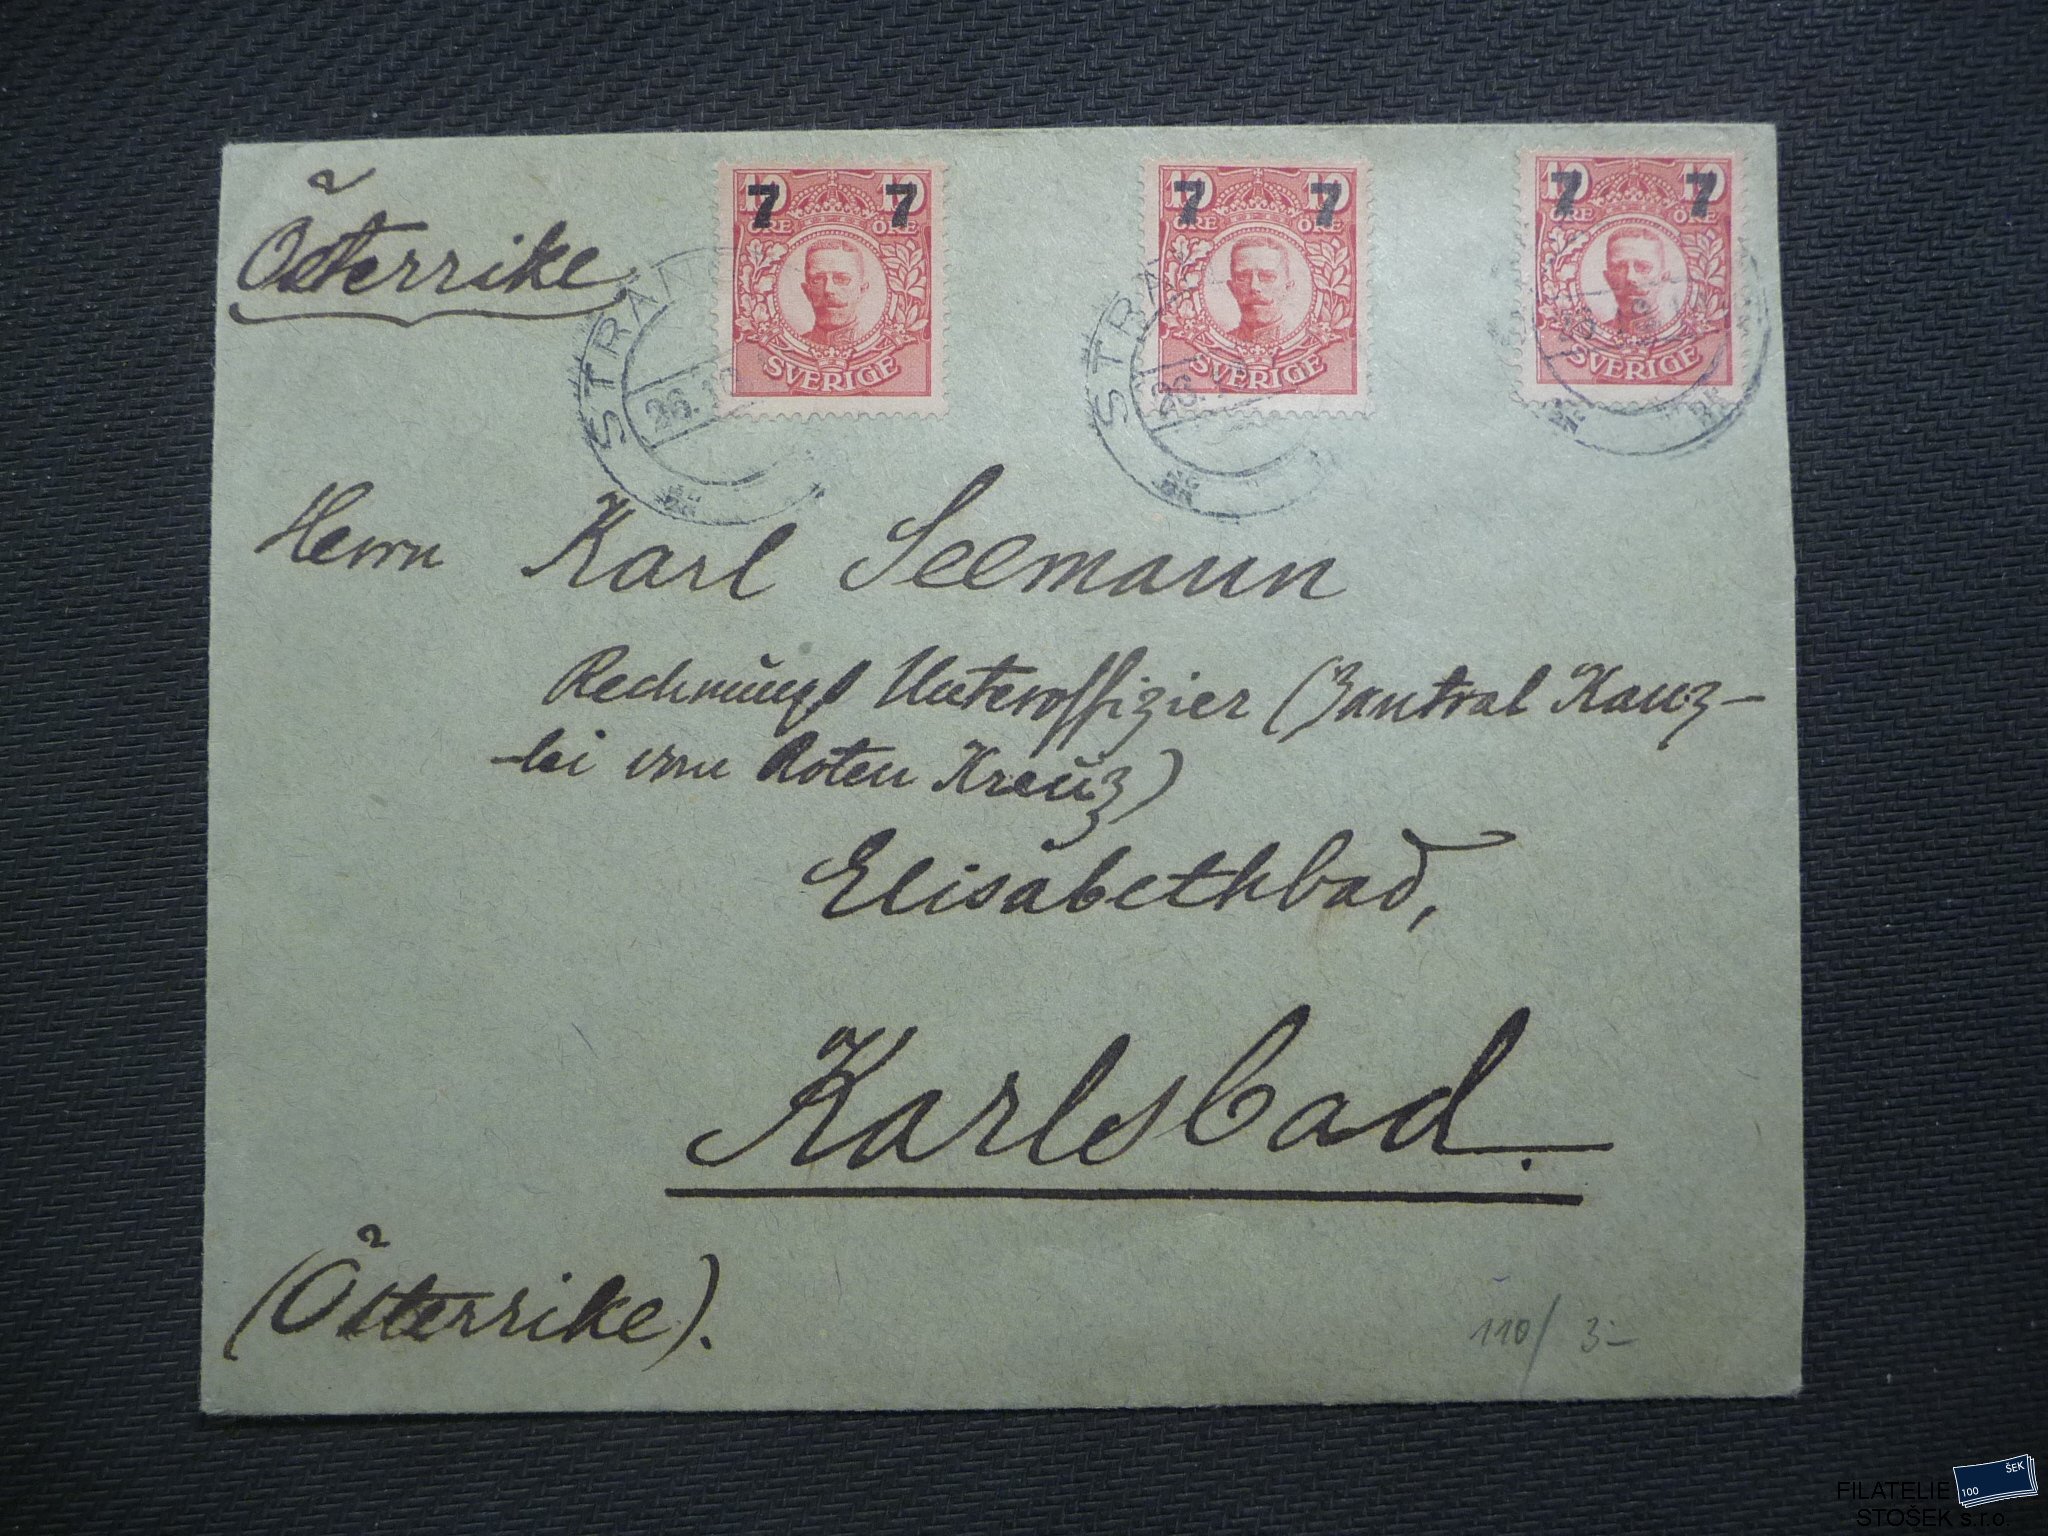 Österrike
7 7
10 10
ÖRE ÖRE
SVERIGE
7 7
10 10
ÖRE ÖRE
SVERIGE
7 7
10 10
ÖRE ÖRE
SVERIGE
STRAN
26.10
STRA
26.
Herrn Karl Seemann
Rechnungs Unteroffizier (Zantral Kanz-
-lei vom Roten Kreuz)
Elisabethbad,
Karlsbad.
(Österrike).
110/ 3-
FILATELIE
STOŠEK s.r.o.
100 ŠEK